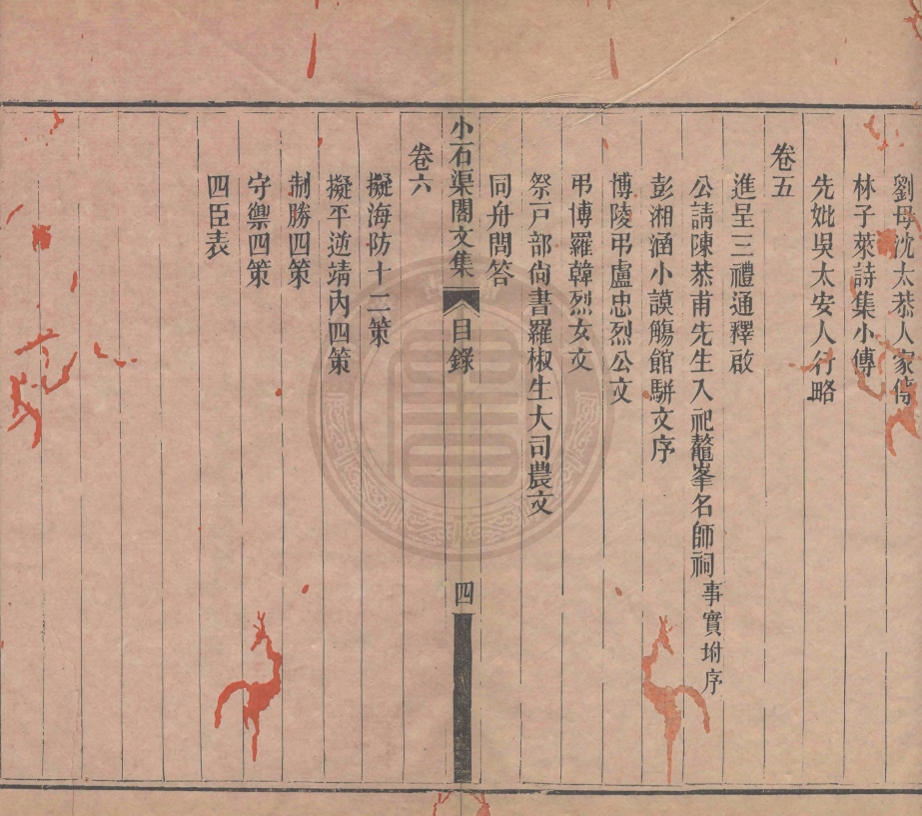 劉母沈太恭人家傳
林子萊詩集小傳
先妣吳太安人行略
卷五
進呈三禮通釋啟
公請陳恭甫先生入祀鼇峯名師祠事實坿序
彭湘涵小謨觴館駢文序
博陵弔盧忠烈公文
弔博羅韓烈女文
祭戸部尙書羅椒生大司農文
同舟問答
小石渠閣文集 目錄 四
卷六
擬海防十二策
擬平逆靖內四策
制勝四策
守禦四策
四臣表